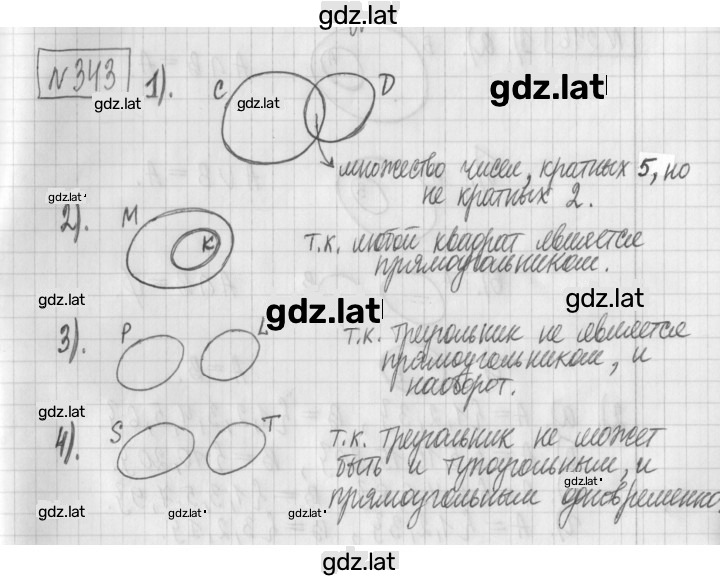 gdz.lat
N 343
1).
C
D
gdz.lat
gdz.lat
gdz.lat
множество чисел, кратных 5, но
не кратных 2.
gdz.lat
2).
M
K
т.к. любой квадрат является
прямоугольником.
gdz.lat
gdz.lat
gdz.lat
3).
P
L
т.к. треугольник не является
прямоугольником, и
наоборот.
gdz.lat
4).
S
T
т.к. треугольник не может
быть и тупоугольным, и
прямоугольным одновременно
gdz.lat
gdz.lat
gdz.lat
gdz.lat
gdz.lat